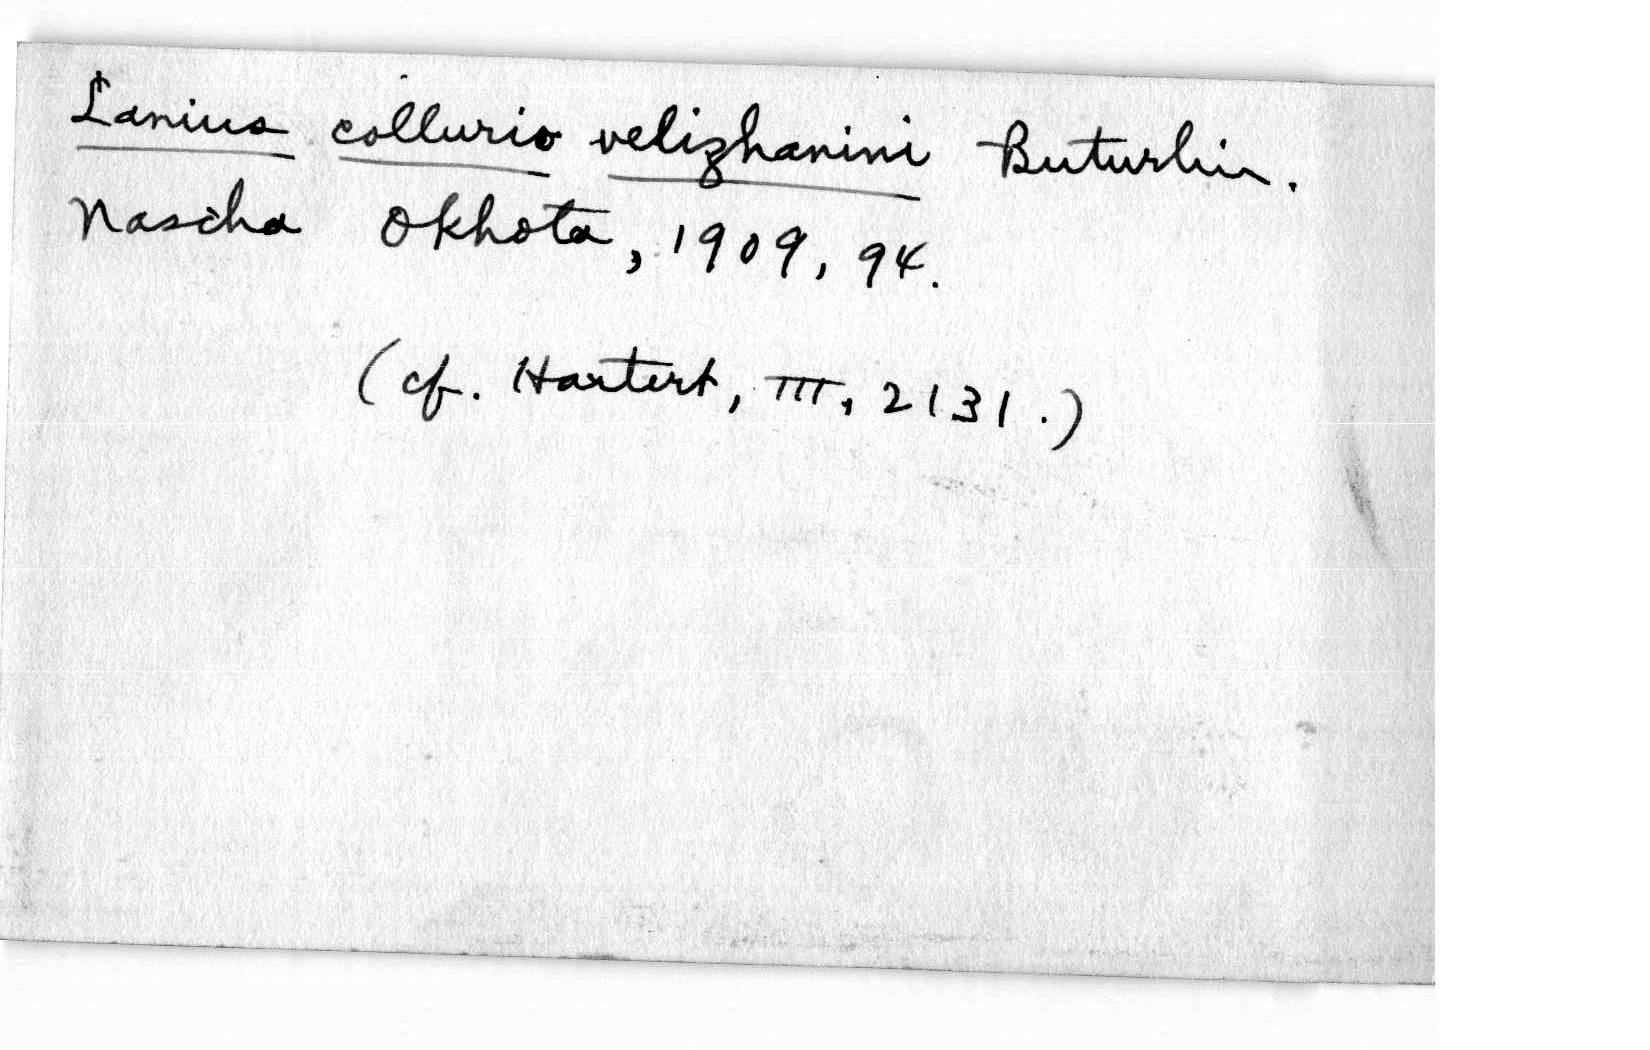 Lanius collurio velizhanini Buturlin.
Nascha Okhota, 1909, 94.
(cf. Hartert, III, 2131.)